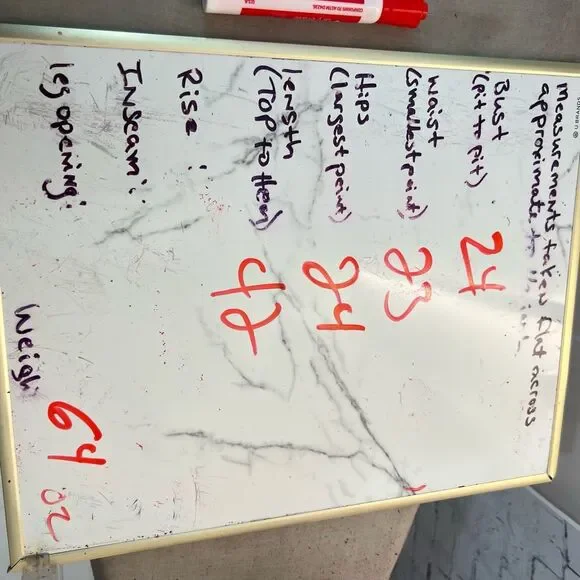 measurements taken flat across
approximate to
Bust
(pit to pit) 24
waist
(smallest point) 23
Hips
(largest point) 24
length
(Top to Hem) 42
Rise:
Inseam:
leg opening:
weigh 64 oz